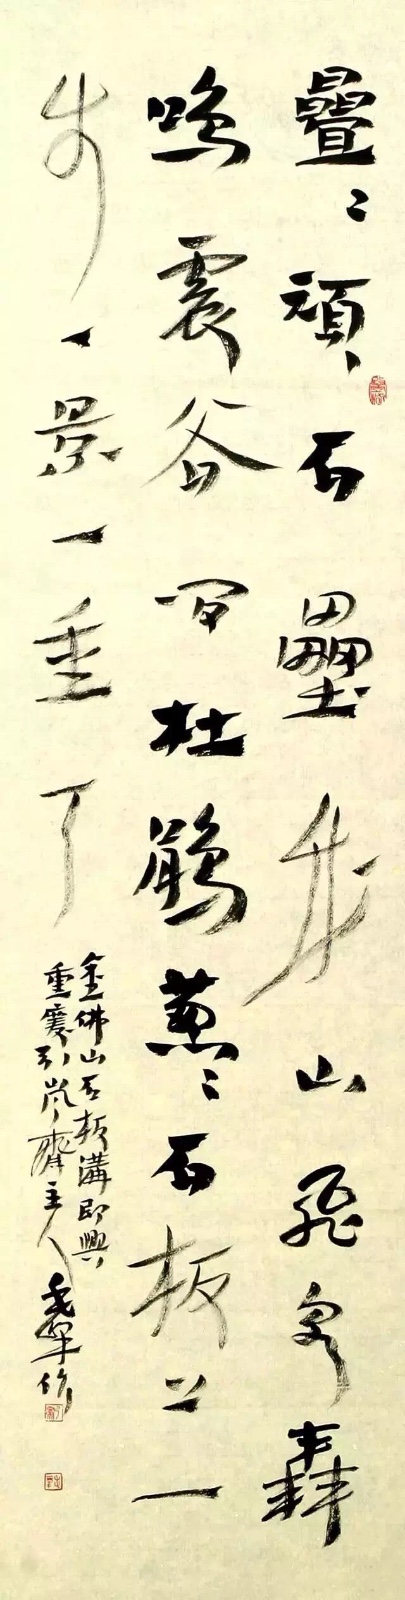 疊々頑石壘成山飛泉轟
鳴震谷間杜鵑蔥々石板上一
步一景一重
金佛山石板溝即興
重慶引嵐齋主人作